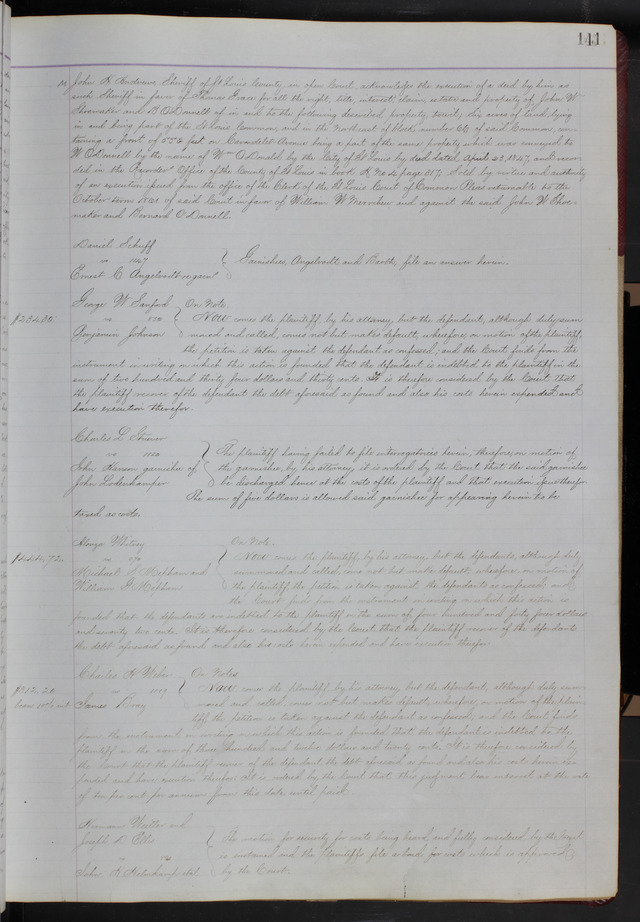 141
John H Andrews Sheriff of St Louis County, in open Court, acknowledges the execution of a deed by him as
such Sheriff in favor of Thomas Grace for all the right, title, interest, claim, estate and property of John W
Shoemaker and B O'Donnell of in and to the following described property, to wit; lying
in and being part of the St Louis Commons, and in the Northeast of block number of said Common, con-
taining a front of feet on Carondelet Avenue being a part of the same property which was conveyed to
W O'Donnell by the name of Wm O'Donald by the City of St Louis by deed dated April 23, 1847, and recor-
ded in the Recorder Office of the County of St Louis in book page Sold by virtue and authority
of an execution issued from the office of the Clerk of the St Louis Court of Common Pleas returnable to the
October term 1861 of said Court in favor of William W and against the said John W Shoe-
maker and Bernard O'Donnell.
Daniel Schuff
vs 1147
Ernest C Angelrodt
Garnishees, Angelrodt and Barth, file an answer herein.
George W Sanford
vs 150
Benjamin Johnson
On Note.
Now comes the plaintiff by his attorney, but the defendant, although duly sum-
moned and called, comes not but makes default, wherefore, on motion of the plaintiff,
the petition is taken against the defendant as confessed; and the Court finds from the
instrument in writing on which this action is founded that the defendant is indebted to the plaintiff in the
sum of two hundred and thirty four dollars and thirty cents. It is therefore considered by the Court that
the plaintiff recover of the defendant the debt aforesaid as found and also his costs herein expended and
have execution therefor.
Charles L
vs
John Hanson garnishee of
John
The plaintiff having failed to file interrogatories herein, therefore, on motion of
the garnishee, by his attorney, it is ordered by the Court that the said garnishee
be discharged hence at the costs of the plaintiff and that execution issue therefor.
The sum of five dollars is allowed said garnishee for appearing herein to be
taxed as costs.
$444,72
Whitney
vs
Michael S Mepham and
William G Mepham
On Note.
Now comes the plaintiff, by his attorney, but the defendants, although duly
summoned and called, come not but make default; wherefore, on motion of
the plaintiff, the petition is taken against the defendants as confessed, and
the Court finds from the instrument in writing on which this action is
founded that the defendants are indebted to the plaintiff in the sum of four hundred and forty four dollars
and seventy two cents. It is therefore considered by the Court that the plaintiff recover of the defendants
the debt aforesaid as found and also his costs herein expended and have execution therefor.
$312.20
Charles H Weber
vs
James Bray
On Notes
Now comes the plaintiff, by his attorney but the defendant, although duly sum-
moned and called, comes not but makes default, wherefore, on motion of the plain-
tiff the petition is taken against the defendant as confessed, and the Court finds
from the instrument in writing on which this action is founded that the defendant is indebted to the
plaintiff in the sum of three hundred and twelve dollars and twenty cents. It is therefore considered by
the Court that the plaintiff recover of the defendant the debt aforesaid as found and also his costs herein ex-
pended and have execution therefor. It is ordered by the Court that this judgment bear interest at the rate
of ten per cent per annum from this date until paid.
Herman and
Joseph
vs
John
The motion for security for costs being heard and fully considered by the Court
is sustained and the plaintiffs file a bond for costs which is approved
by the Court.